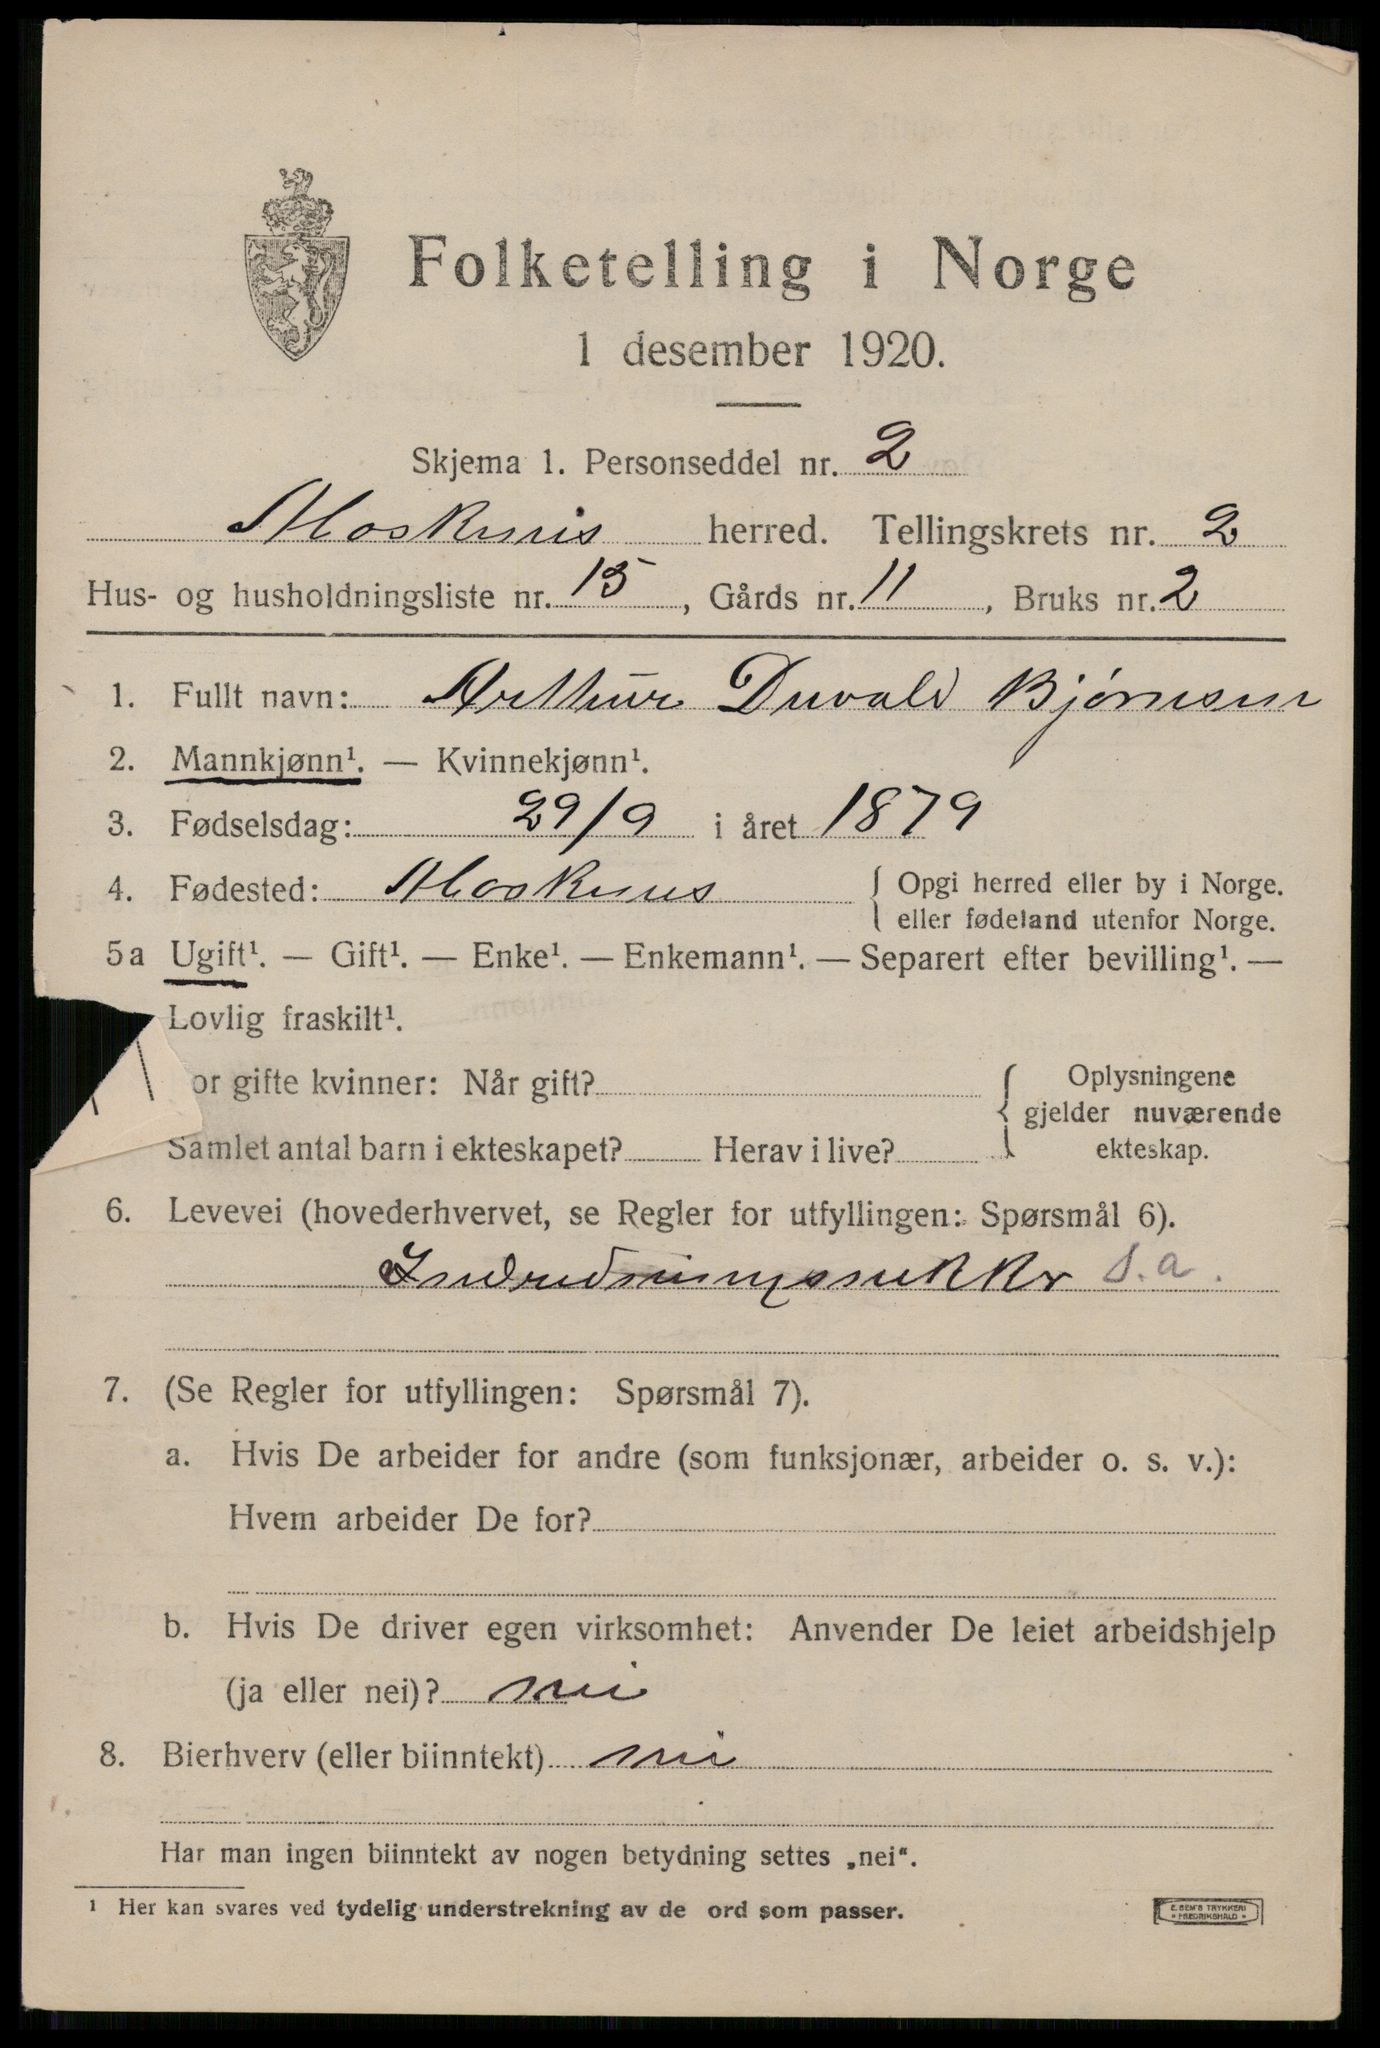 Folketelling i Norge
1 desember 1920.
Skjema 1. Personseddel nr. 2
Moskenes herred. Tellingskrets nr. 2
Hus- og husholdningsliste nr. 15, Gårds nr. 11, Bruks nr. 2
1. Fullt navn: Arthur Duvald Bjørnsen
2. Mannkjønn¹. — Kvinnekjønn¹.
3. Fødselsdag: 29/9 i året 1879
4. Fødested: Moskenes { Opgi herred eller by i Norge.
eller fødeland utenfor Norge.
5a Ugift¹. — Gift¹. — Enke¹. — Enkemann¹. — Separert efter bevilling¹. —
Lovlig fraskilt¹.
or gifte kvinner: Når gift? { Oplysningene
gjelder nuværende
Samlet antal barn i ekteskapet? Herav i live? ekteskap.
6. Levevei (hovederhvervet, se Regler for utfyllingen: Spørsmål 6).
Indredningssnekker S.a.
7. (Se Regler for utfyllingen: Spørsmål 7).
a. Hvis De arbeider for andre (som funksjonær, arbeider o. s. v.):
Hvem arbeider De for?
b. Hvis De driver egen virksomhet: Anvender De leiet arbeidshjelp
(ja eller nei)? nei
8. Bierhverv (eller biinntekt) nei
Har man ingen biinntekt av nogen betydning settes „nei“.
¹ Her kan svares ved tydelig understrekning av de ord som passer.
E. SEM'S TRYKKERI
• FREDRIKSHALD •